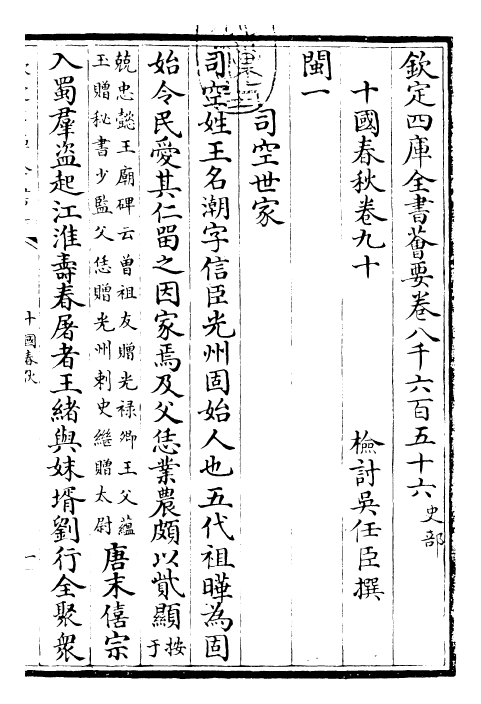 欽定四庫全書薈要卷八千六百五十六史部
十國春秋卷九十
檢討吳任臣撰
閩一
司空世家
司空姓王名潮字信臣光州固始人也五代祖曄為固
始令民愛其仁留之因家焉及父恁業農頗以貲顯按于
兢忠懿王廟碑云曽祖友贈光祿卿王父蘊
玉贈秘書少監父恁贈光州刺史繼贈太尉
唐末僖宗
入蜀羣盗起江淮壽春屠者王緒與妹壻劉行全聚衆
十國春秋
一